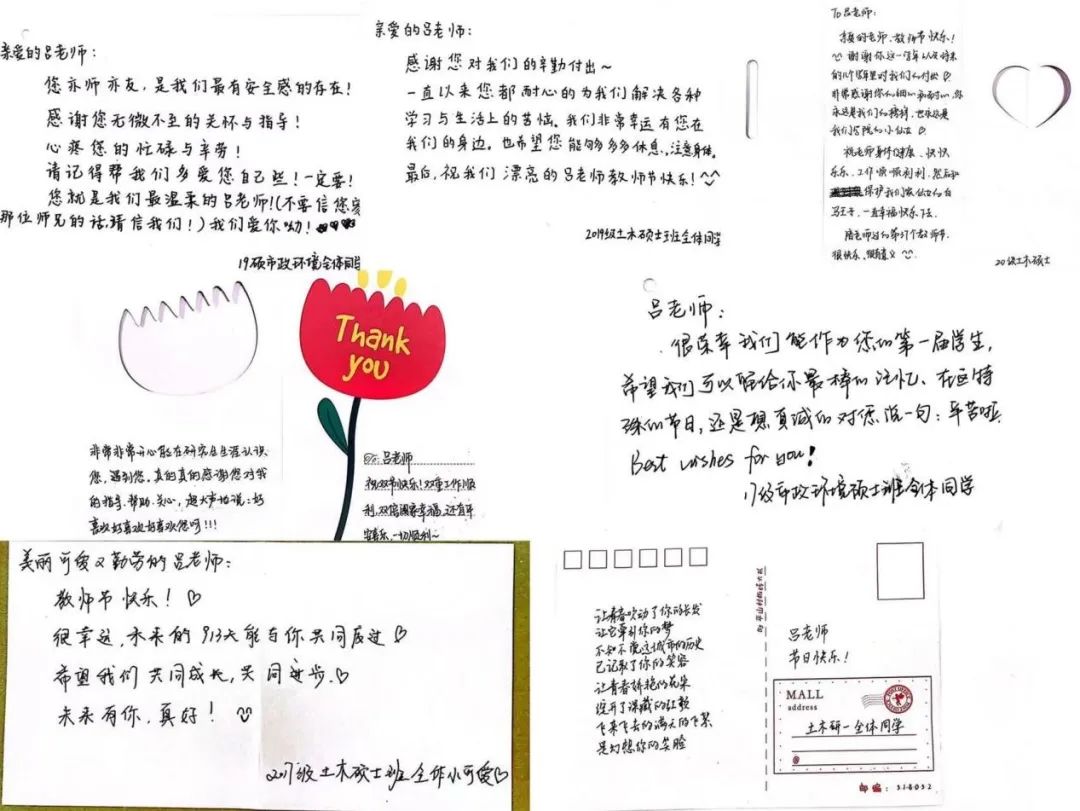 亲爱的吕老师：
您亦师亦友，是我们最有安全感的存在！
感谢您无微不至的关怀与指导！
心疼您的忙碌与辛劳！
请记得帮我们多爱您自己些！一定要！
您就是我们最温柔的吕老师！(不要信您家
那位师兄的话，请信我们！）我们爱你呦！
19硕市政环境全体同学
亲爱的吕老师：
感谢您对我们的辛勤付出～
一直以来您都耐心的为我们解决各种
学习与生活上的苦恼。我们非常幸运有您在
我们的身边。也希望您能够多多休息，注意身体。
最后，祝我们漂亮的吕老师教师节快乐！
2019级土木硕士班全体同学
To 吕老师：
亲爱的老师、教师节快乐！
谢谢你这一年以及将来
的几个年里对我们的付出
非常感谢你的细心和耐心，你
永远是我们的榜样，也永远是
我们学院的小仙女
祝老师身体健康、快快
乐乐、工作顺顺利利，然后和
保护我们家仙女的白
马王子，一直幸福快乐下去。
陪老师过的第37个教师节
很快乐、很有意义
20级土木硕士
Thank
you
非常非常开心能在研究生生涯认识
您，遇到您。真的真的感谢您对我
的指导、帮助、关心，超大声地说：好
喜欢好喜欢好喜欢您呀！！！
To：吕老师
祝双节快乐！双重工作顺
利，双倍阖家幸福，还有平
安喜乐，一切顺利～
吕老师：
很荣幸我们能作为您的第一届学生，
希望我们可以留给你最棒的记忆、在这特
殊的节日，还是想真诚的对您说一句：辛苦啦.
Best wishes for you!
17级市政环境硕士班全体同学
美丽可爱又勤劳的吕老师：
教师节快乐！
很幸运，未来的913天能与你共同度过
希望我们共同成长，共同进步.
未来有你，真好！
2017级土木硕士班全体小可爱
让青春吹动了你的长发
让它牵引你的梦
不知不觉这城市的历史
已记取了你的笑容
让青春娇艳的花朵
绽开了深藏的红颜
飞来飞去的满天的飞絮
是幻想你的笑脸
吕老师
节日快乐！
MALL
address
土木研一全体同学
邮编：518052